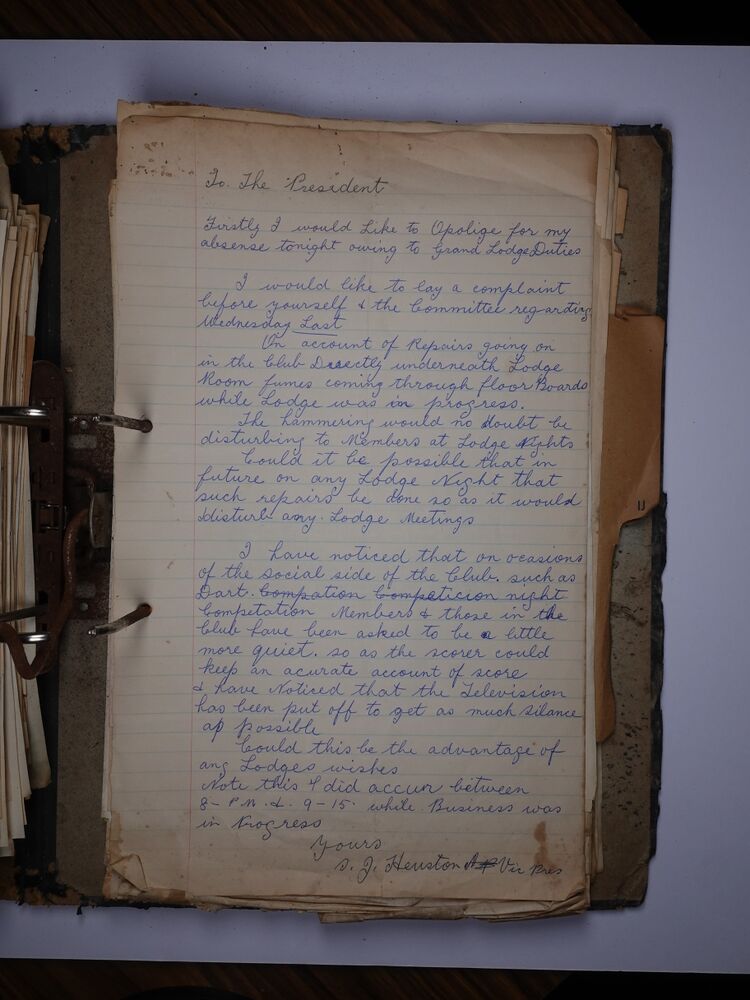 To. The President
Firstly I would Like to Opolige for my
absense tonight owing to Grand Lodge Duties
I would like to lay a complaint
before yourself & the Committee regarding
Wednesday Last
On account of Repairs going on
in the Club Directly underneath Lodge
Room fumes coming through floor Boards
while Lodge was in progress.
The hammering would no doubt be
disturbing to Members at Lodge Nights
Could it be possible that in
future on any Lodge Night that
such repairs be done so as it would
disturb any. Lodge Meetings
I have noticed that on ocasions
of the social side of the Club. such as
Dart. Compation Competicion night
Competation Members & those in the
Club have been asked to be a little
more quiet. so as the scorer could
keep an acurate account of score
& have Noticed that the Television
has been put off to get as much Silance
as possible
Could this be the advantage of
any Lodges wishes
Note this I did accur between
8- P.M. & 9-15. while Business was
in Progress
Yours
S. J. Heuston Vic Pres